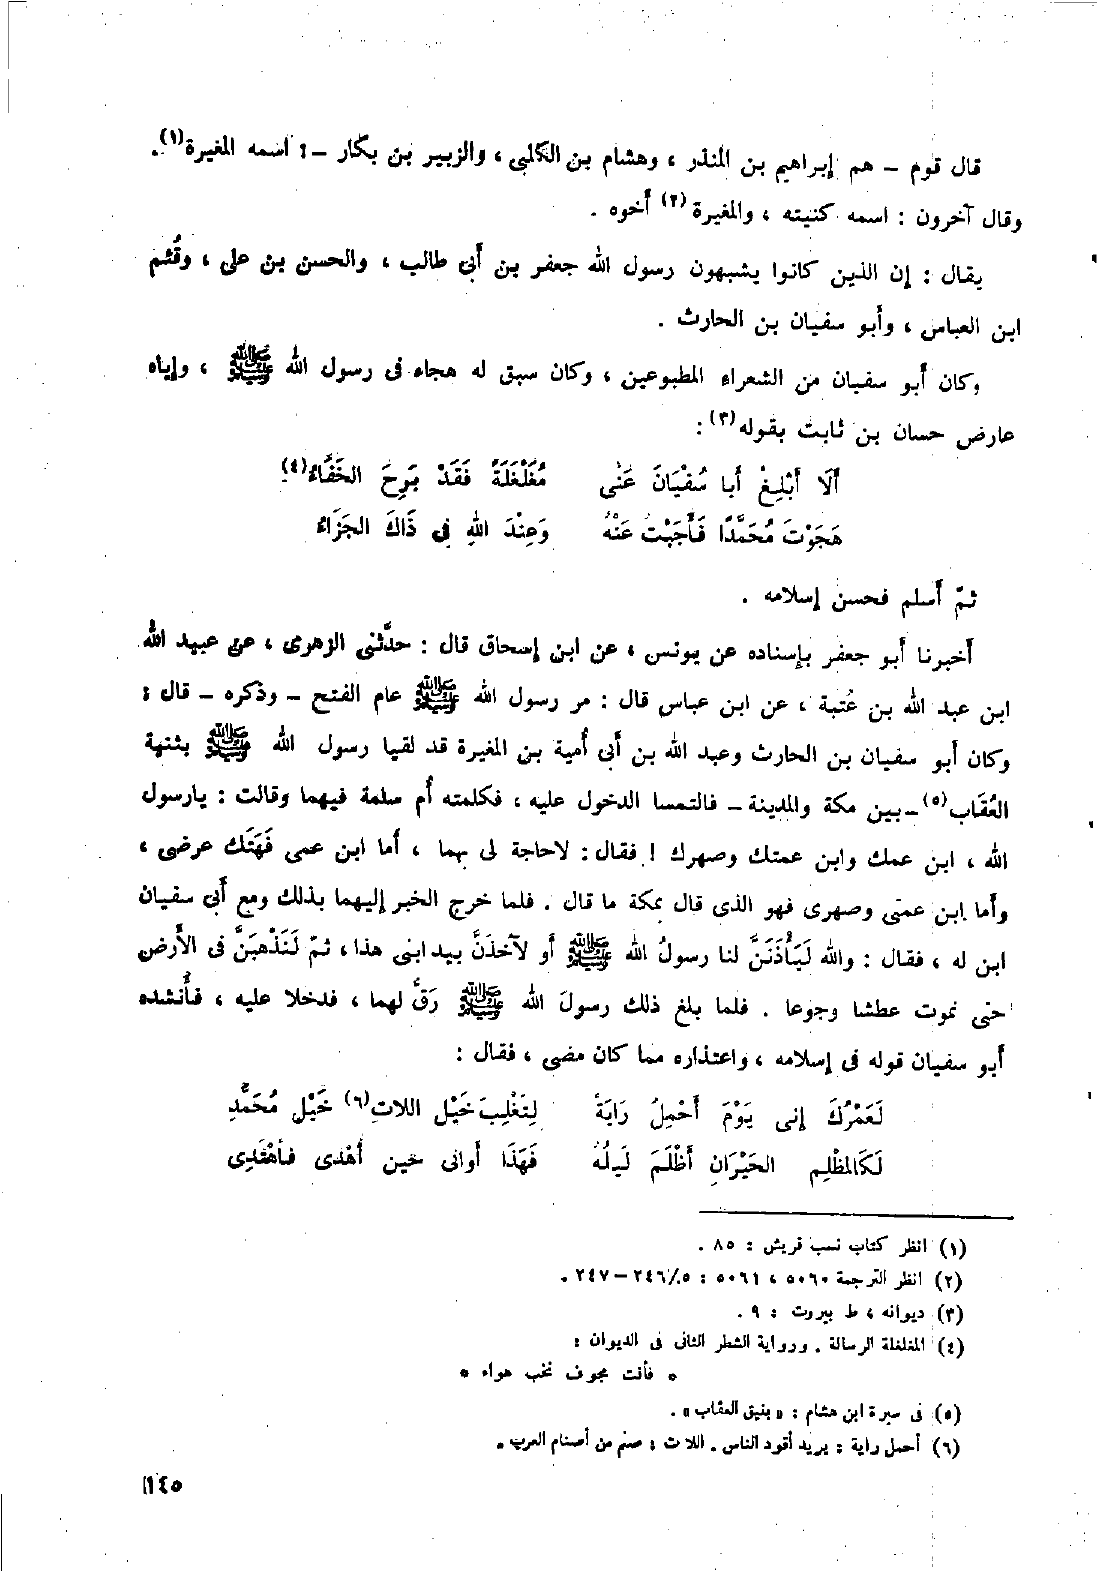 قال قوم – هم إبراهيم بن المنذر ، وهشام بن الكلبى ، والزبير بن بكار – : اسمه المغيرة(١).
وقال آخرون : اسمه كنيته ، والمغيرة(٢) أخوه .
يقال : إن الذين كانوا يشبهون رسول الله جعفر بن أبى طالب ، والحسن بن على ، وقُثَم
ابن العباس ، وأبو سفيان بن الحارث .
وكان أبو سفيان من الشعراء المطبوعين ، وكان سبق له هجاء فى رسول الله ﷺ ، وإياه
عارض حسان بن ثابت بقوله(٣) :
أَلَا أَبْلِغْ أبا سُفْيَانَ عَنِّى مُغَلْغَلَةً فَقَدْ بَرِحَ الخَفَاءُ(٤)
هَجَوْتَ مُحَمَّدًا فَأَجَبْتُ عَنْهُ وَعِنْدَ اللهِ فى ذَاكَ الجَزَاءُ
ثمّ أسلم فحسن إسلامه .
أخبرنا أبو جعفر بإسناده عن يونس ، عن ابن إسحاق قال : حدَّثنى الزهرى ، عن عبيد الله
ابن عبد الله بن عُتبة ، عن ابن عباس قال : مر رسول الله ﷺ عام الفتح – وذكره – قال :
وكان أبو سفيان بن الحارث وعبد الله بن أبى أُمية بن المغيرة قد لقيا رسول الله ﷺ بثنية
العُقَاب(٥) – بين مكة والمدينة – فالتمسا الدخول عليه ، فكلمته أُم سلمة فيهما وقالت : يارسول
الله ، ابن عمك وابن عمتك وصهرك ! فقال : لاحاجة لى بهما ، أما ابن عمى فَهَتَك عرضى ،
وأما ابن عمتى وصهرى فهو الذى قال بمكة ما قال . فلما خرج الخبر إليهما بذلك ومع أبى سفيان
ابن له ، فقال : والله لَيَأْذَنَنَّ لنا رسولُ الله ﷺ أو لآخذَنَّ بيد ابنى هذا ، ثمّ لَنَذْهبَنَّ فى الأرض
حتى نموت عطشا وجوعا . فلما بلغ ذلك رسولَ الله ﷺ رَقَّ لهما ، فدخلا عليه ، فأنشده
أبو سفيان قوله فى إسلامه ، واعتذاره مما كان مضى ، فقال :
لَعَمْرُكَ إنى يَوْمَ أَحْمِلُ رَايَةً لِتَغْلِبَ خَيْل اللات(٦) خَيْل مُحَمَّدِ
لَكَالمظْلِم الحَيْرَانِ أَظْلَمَ لَيلُهُ فَهَذَا أوانى حين أُهْدى فأهْتَدِى
(١) انظر كتاب نسب قريش : ٨٥ .
(٢) انظر الترجمة ٥٠٦٠ ، ٥٠٦١ : ٥/ ٢٤٦ – ٢٤٧ .
(٣) ديوانه ، ط بيروت : ٩ .
(٤) المغلغلة الرسالة . ورواية الشطر الثانى فى الديوان :
* فأنت مجوف نخب هواء *
(٥) فى سيرة ابن هشام : « بنيق العقاب » .
(٦) أحمل راية : يريد أقود الناس . اللات : صنم من أصنام العرب .
١٤٥